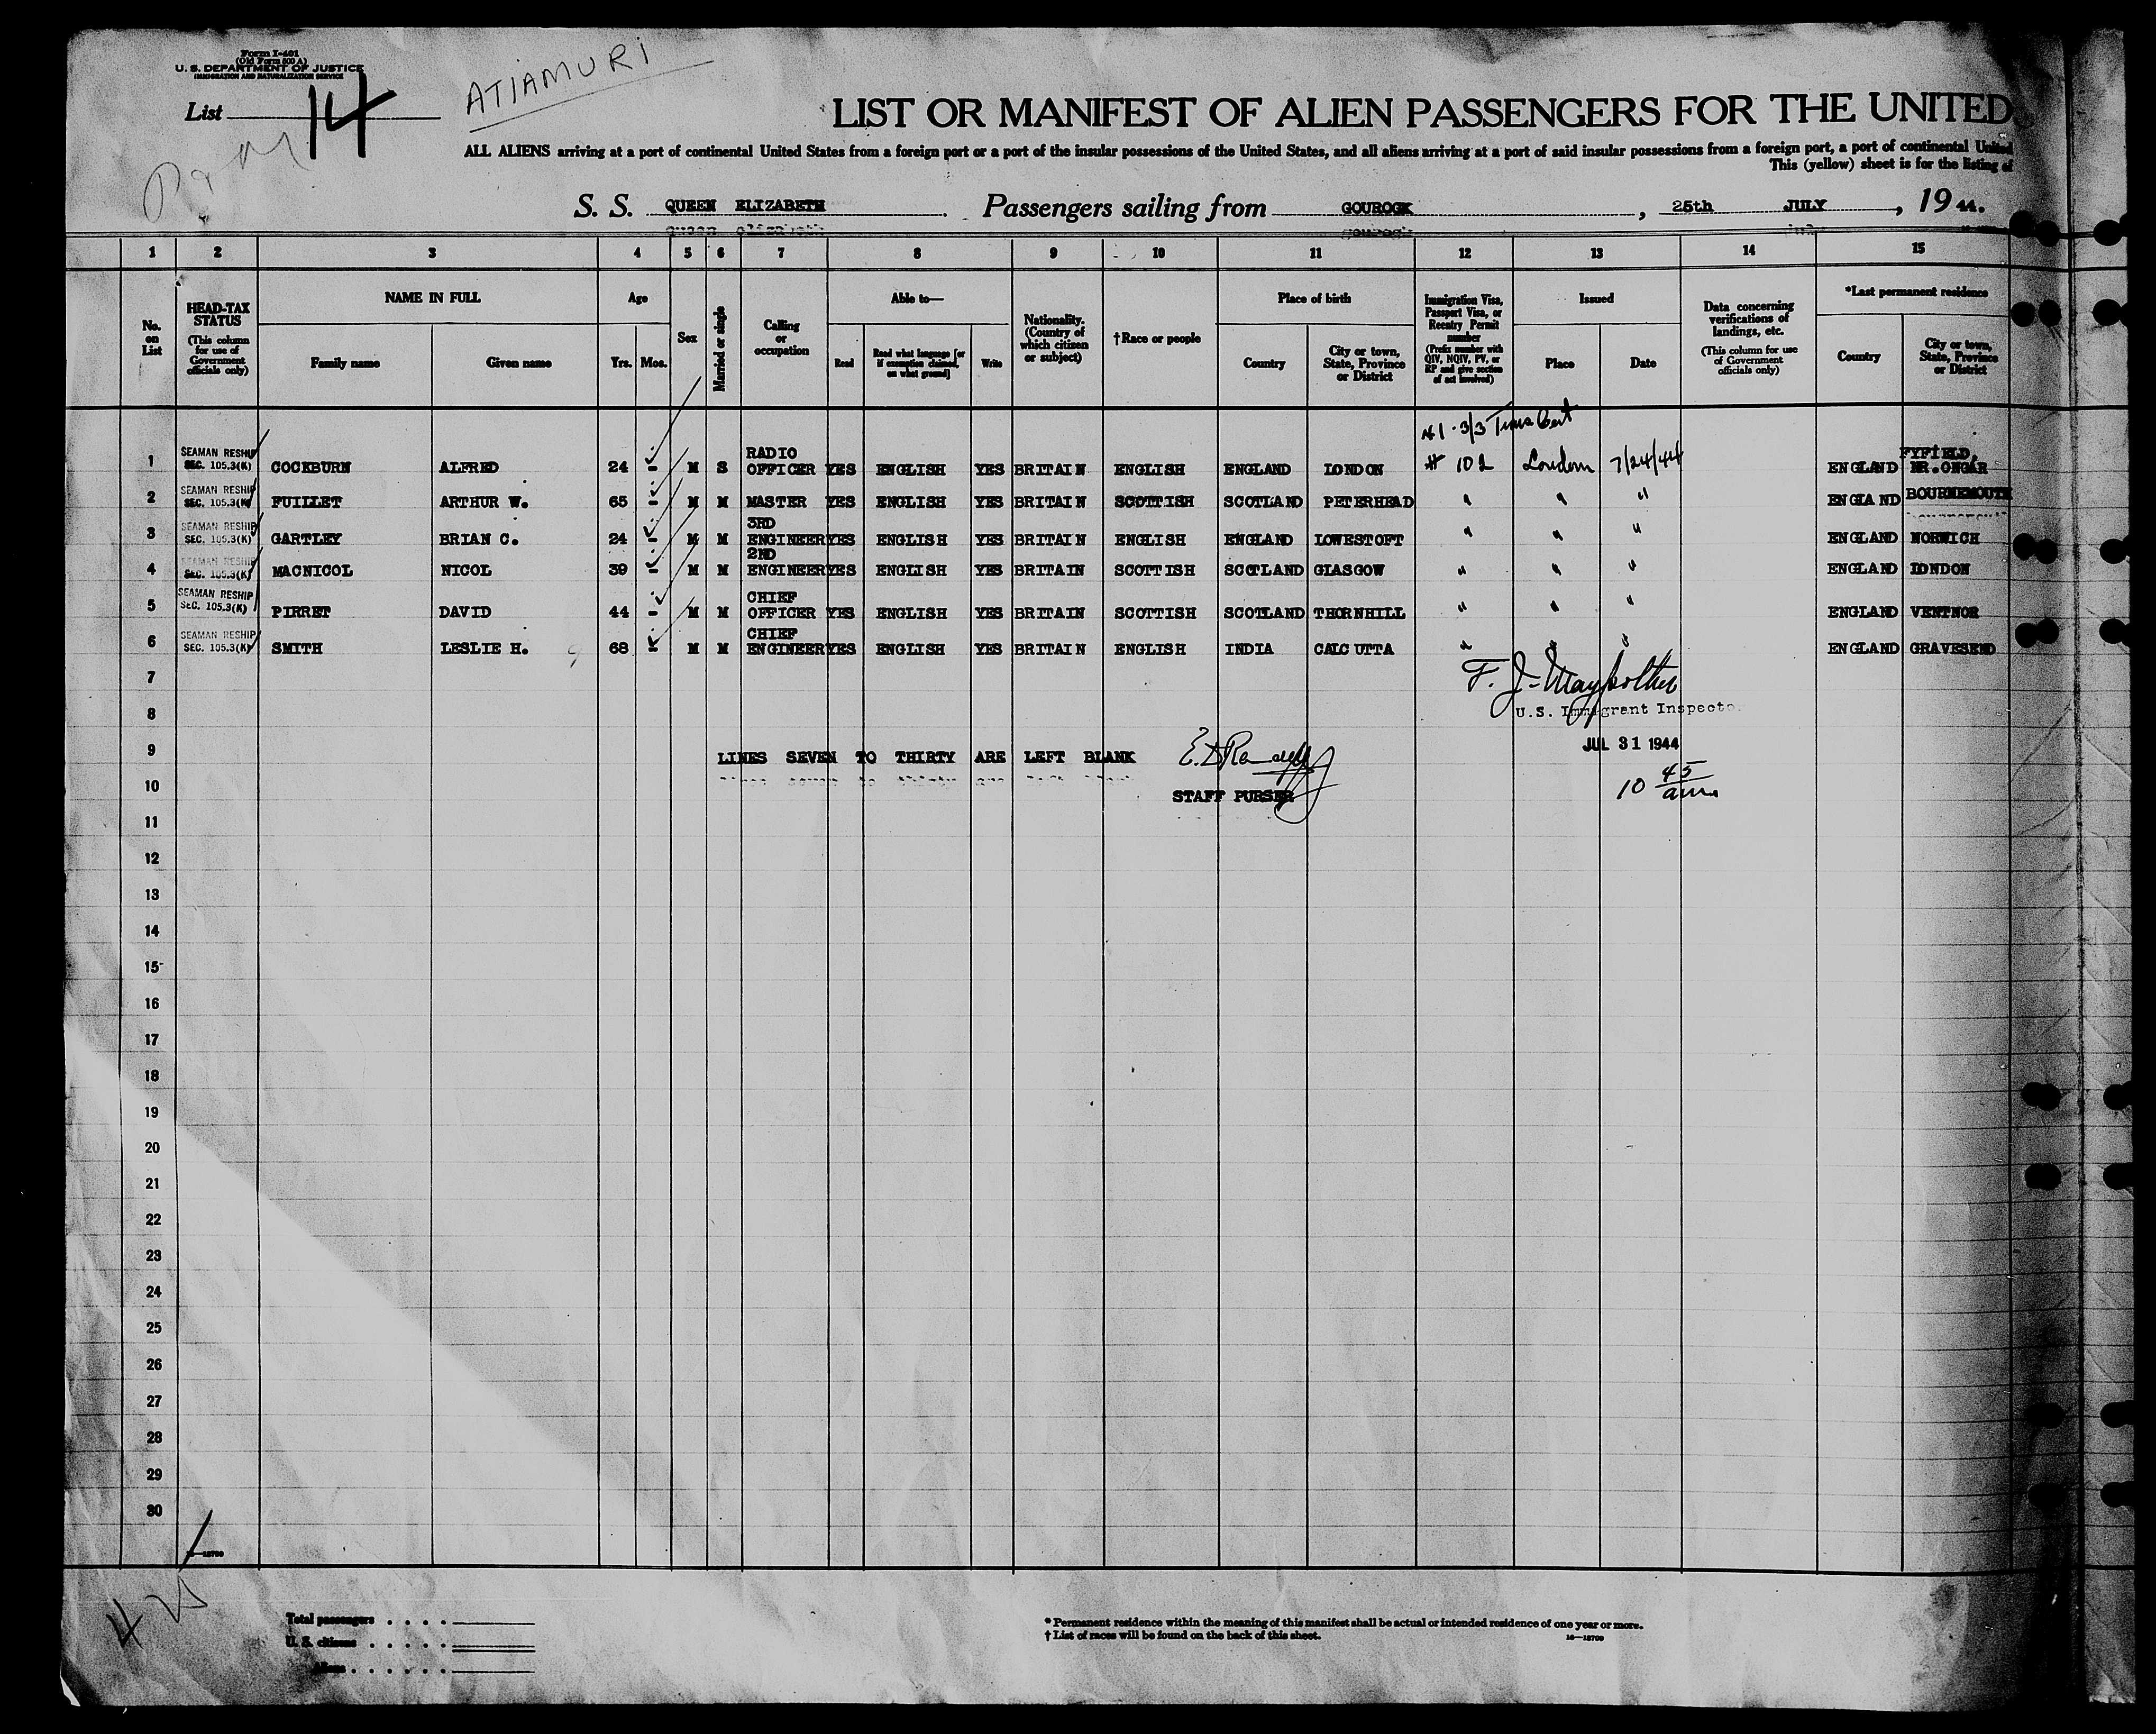 Form I-401
(Old Form 500 A)
U. S. DEPARTMENT OF JUSTICE
IMMIGRATION AND NATURALIZATION SERVICE
List 14
ATIAMURI
LIST OR MANIFEST OF ALIEN PASSENGERS FOR THE UNITED
ALL ALIENS arriving at a port of continental United States from a foreign port or a port of the insular possessions of the United States, and all aliens arriving at a port of said insular possessions from a foreign port, a port of continental United
This (yellow) sheet is for the listing of
S. S. QUEEN ELIZABETH Passengers sailing from GOUROCK, 25th JULY, 19 44.
1 2 3 4 5 6 7 8 9 10 11 12 13 14 15
No. on List
HEAD-TAX STATUS (This column for use of Government officials only)
NAME IN FULL
Family name Given name
Age
Yrs. Mos.
Sex
Married or single
Calling or occupation
Able to—
Read Read what language [or if exemption claimed, on what ground] Write
Nationality. (Country of which citizen or subject)
†Race or people
Place of birth
Country City or town, State, Province or District
Immigration Visa, Passport Visa, or Reentry Permit number (Prefix number with QIV, NQIV, PV, or RP and give section of act involved)
Issued
Place Date
Data concerning verifications of landings, etc. (This column for use of Government officials only)
*Last permanent residence
Country City or town, State, Province or District
#1 3/3 Trans Cert
1 SEAMAN RESHIP SEC. 105.3(K) COCKBURN ALFRED 24 - M S RADIO OFFICER YES ENGLISH YES BRITAIN ENGLISH ENGLAND LONDON # 102 London 7/24/44 ENGLAND FYFIELD, NR.ONGAR
2 SEAMAN RESHIP SEC. 105.3(K) FUILLET ARTHUR W. 65 - M M MASTER YES ENGLISH YES BRITAIN SCOTTISH SCOTLAND PETERHEAD " " " ENGLAND BOURNEMOUTH
3 SEAMAN RESHIP SEC. 105.3(K) GARTLEY BRIAN C. 24 - M M 3RD ENGINEER YES ENGLISH YES BRITAIN ENGLISH ENGLAND LOWESTOFT " " " ENGLAND NORWICH
4 SEAMAN RESHIP SEC. 105.3(K) MACNICOL NICOL 39 - M M 2ND ENGINEER YES ENGLISH YES BRITAIN SCOTTISH SCOTLAND GLASGOW " " " ENGLAND LONDON
5 SEAMAN RESHIP SEC. 105.3(K) PIRRET DAVID 44 - M M CHIEF OFFICER YES ENGLISH YES BRITAIN SCOTTISH SCOTLAND THORNHILL " " " ENGLAND VENTNOR
6 SEAMAN RESHIP SEC. 105.3(K) SMITH LESLIE H. 68 - M M CHIEF ENGINEER YES ENGLISH YES BRITAIN ENGLISH INDIA CALCUTTA " " " ENGLAND GRAVESEND
7
8 U.S. Immigrant Inspector
9 LINES SEVEN TO THIRTY ARE LEFT BLANK JUL 31 1944
10 STAFF PURSER 10 45 am
11
12
13
14
15
16
17
18
19
20
21
22
23
24
25
26
27
28
29
30
Total passengers
U. S. citizens
Aliens
* Permanent residence within the meaning of this manifest shall be actual or intended residence of one year or more.
† List of races will be found on the back of this sheet.